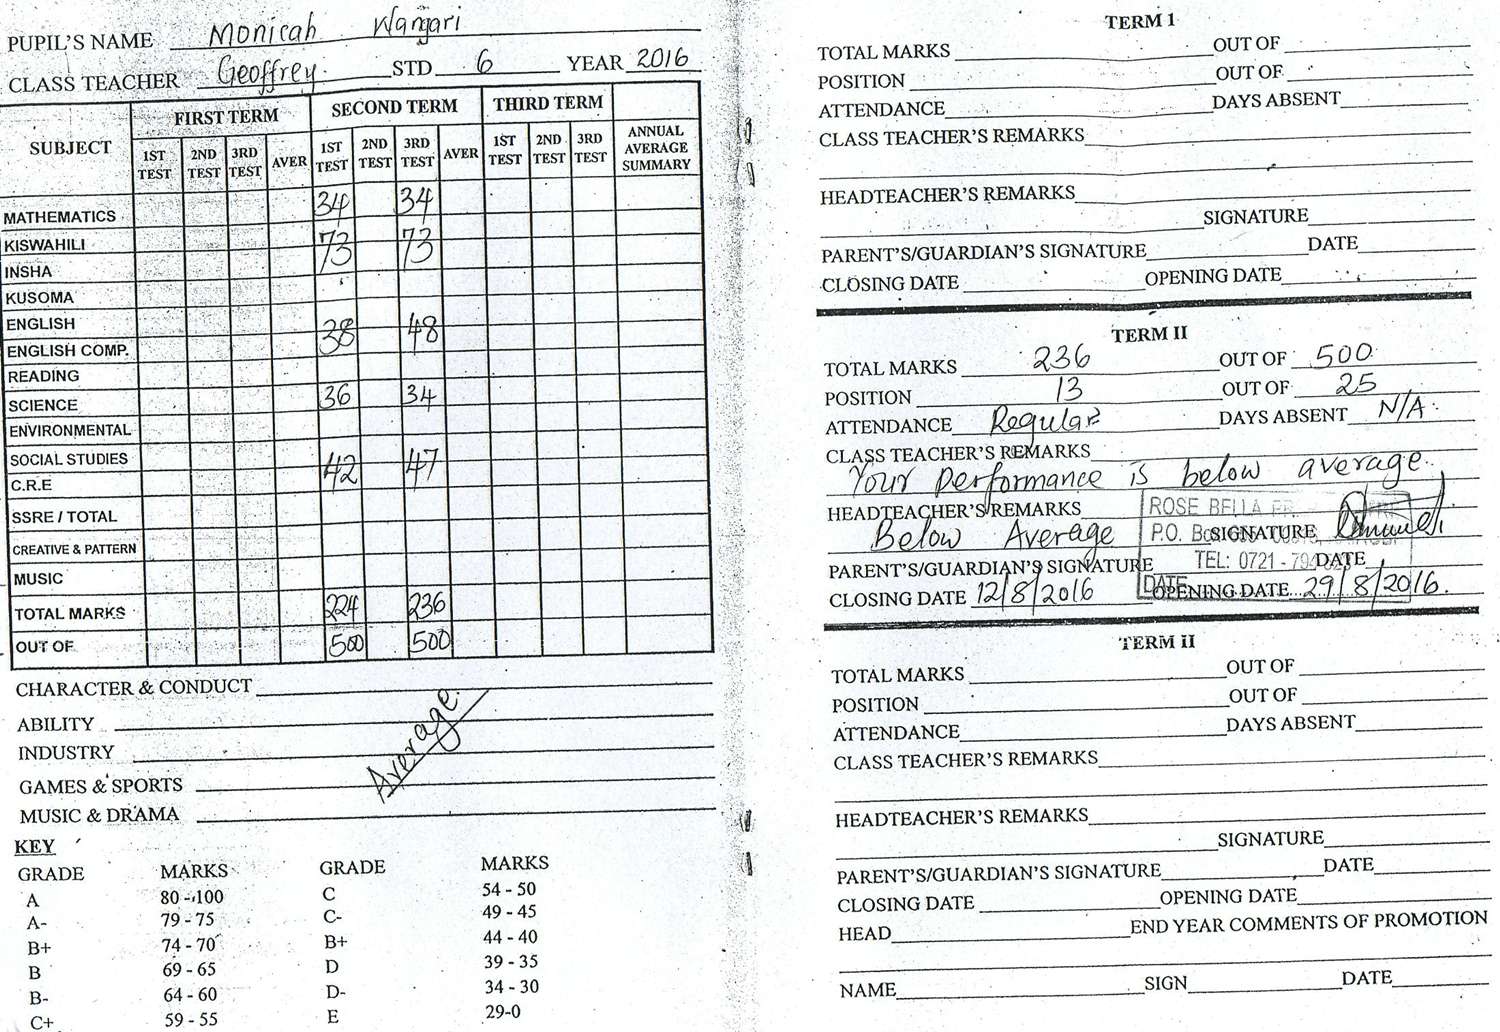 PUPIL'S NAME Monicah Wangari
CLASS TEACHER Geoffrey. STD 6 YEAR 2016
SUBJECT FIRST TERM SECOND TERM THIRD TERM ANNUAL AVERAGE SUMMARY
1ST TEST 2ND TEST 3RD TEST AVER 1ST TEST 2ND TEST 3RD TEST AVER 1ST TEST 2ND TEST 3RD TEST
MATHEMATICS 34 34
KISWAHILI 73 73
INSHA
KUSOMA
ENGLISH 38 48
ENGLISH COMP.
READING
SCIENCE 36 34
ENVIRONMENTAL
SOCIAL STUDIES 42 47
C.R.E
SSRE / TOTAL
CREATIVE & PATTERN
MUSIC
TOTAL MARKS 224 236
OUT OF 500 500
CHARACTER & CONDUCT
ABILITY
INDUSTRY
Average.
GAMES & SPORTS
MUSIC & DRAMA
KEY
GRADE MARKS GRADE MARKS
A 80 - 100 C 54 - 50
A- 79 - 75 C- 49 - 45
B+ 74 - 70 B+ 44 - 40
B 69 - 65 D 39 - 35
B- 64 - 60 D- 34 - 30
C+ 59 - 55 E 29-0
TERM 1
TOTAL MARKS OUT OF
POSITION OUT OF
ATTENDANCE DAYS ABSENT
CLASS TEACHER'S REMARKS
HEADTEACHER'S REMARKS
SIGNATURE
PARENT'S/GUARDIAN'S SIGNATURE DATE
CLOSING DATE OPENING DATE
TERM II
TOTAL MARKS 236 OUT OF 500
POSITION 13 OUT OF 25
ATTENDANCE Regular DAYS ABSENT N/A
CLASS TEACHER'S REMARKS
Your performance is below average.
HEADTEACHER'S REMARKS ROSE BELLA
Below Average P.O. Box SIGNATURE
PARENT'S/GUARDIAN'S SIGNATURE TEL: 0721 - DATE
CLOSING DATE 12/8/2016 DATE OPENING DATE 29/8/2016.
TERM II
TOTAL MARKS OUT OF
POSITION OUT OF
ATTENDANCE DAYS ABSENT
CLASS TEACHER'S REMARKS
HEADTEACHER'S REMARKS
SIGNATURE
PARENT'S/GUARDIAN'S SIGNATURE DATE
CLOSING DATE OPENING DATE
HEAD END YEAR COMMENTS OF PROMOTION
NAME SIGN DATE